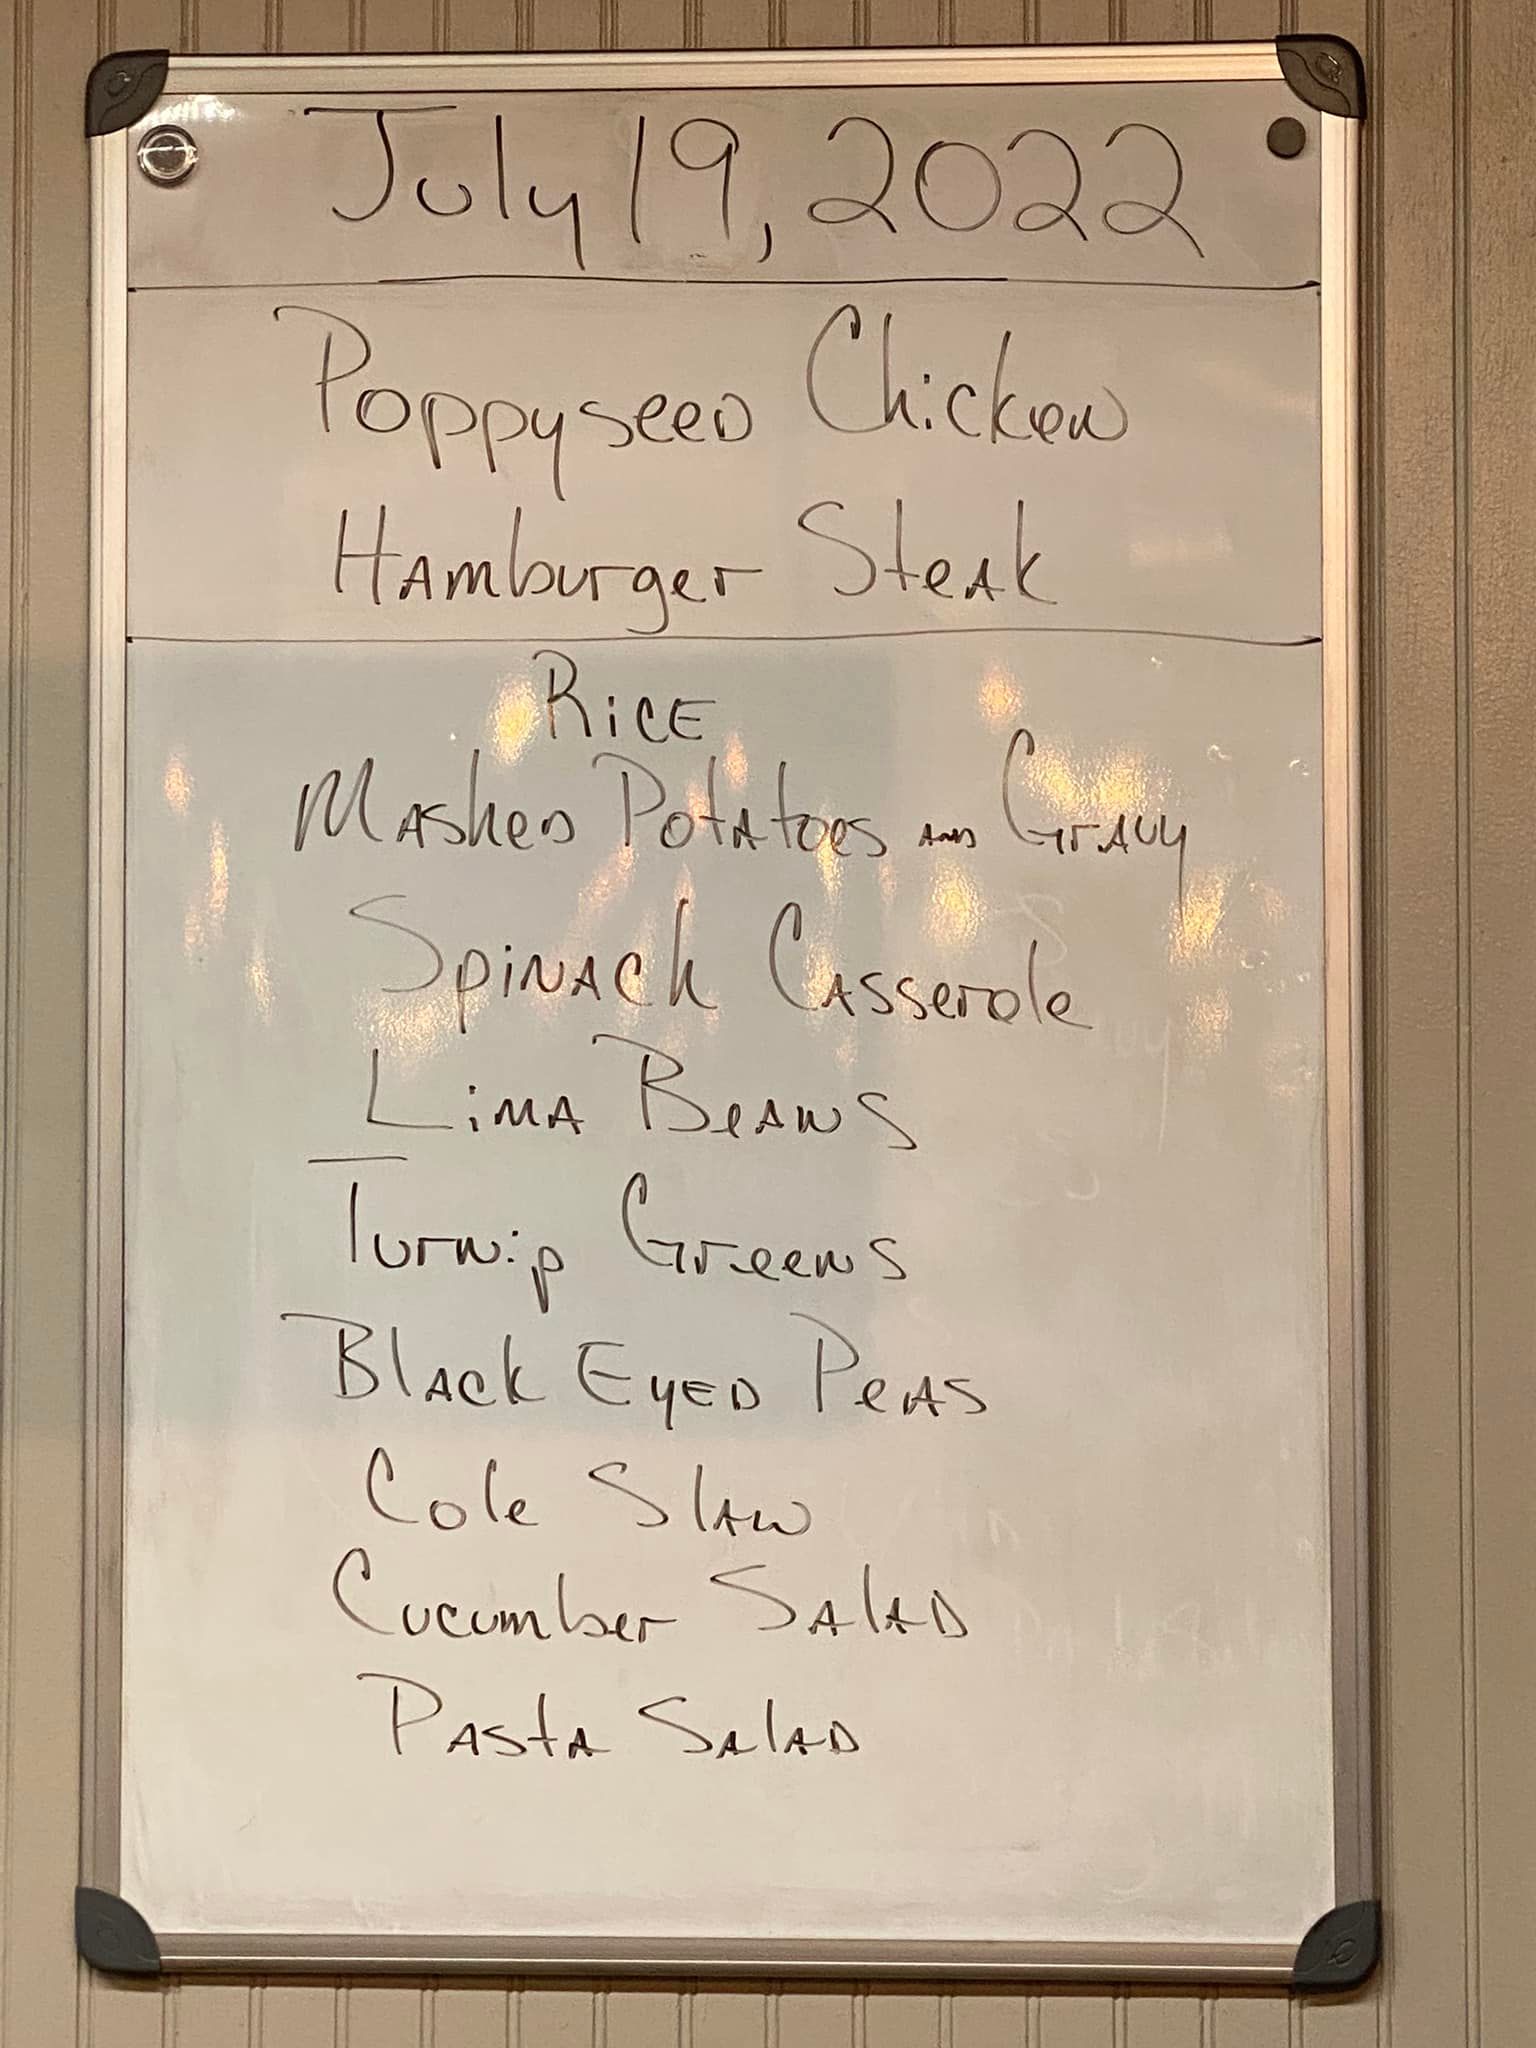 July 19, 2022
Poppyseed Chicken
Hamburger Steak
Rice
Mashed Potatoes and Gravy
Spinach Casserole
Lima Beans
Turnip Greens
Black Eyed Peas
Cole Slaw
Cucumber Salad
Pasta Salad